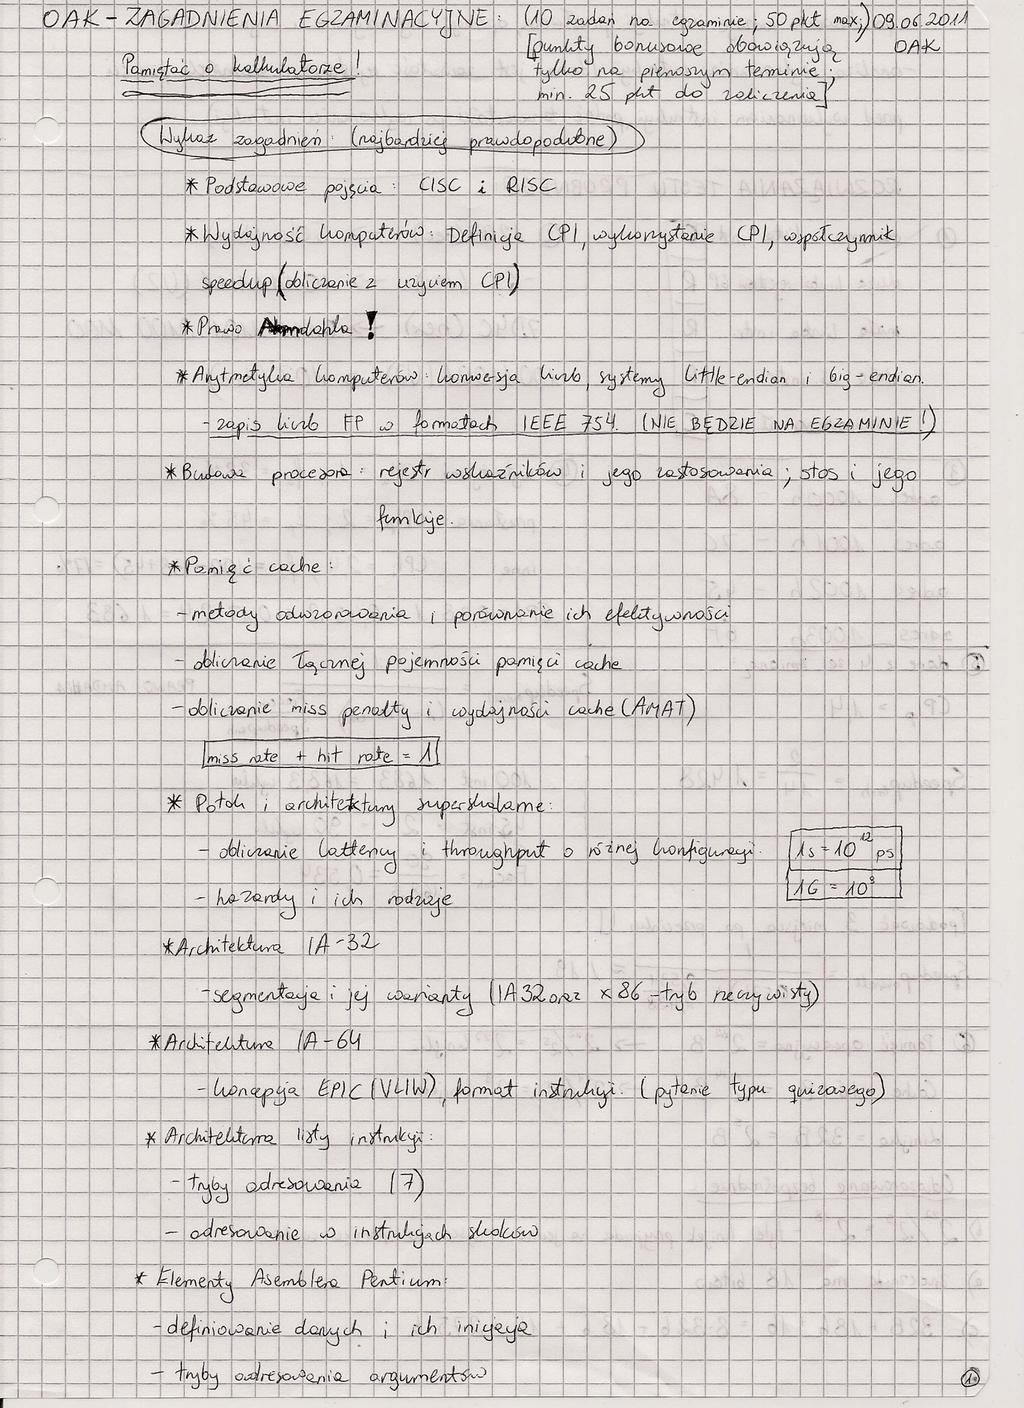 OAK - ZAGADNIENIA EGZAMINACYJNE: (10 zadań na egzaminie; 50 pkt max;) 09.06.2011
[punkty bonusowe obowiązują OAK
Pamiętać o kalkulatorze! tylko na pierwszym terminie;
min. 25 pkt do zaliczenia]
Wykaz zagadnień: (najbardziej prawdopodobne)
* Podstawowe pojęcia: CISC i RISC
* Wydajność komputerów: Definicja CPI, wykorzystanie CPI, współczynnik
speedup (obliczanie z użyciem CPI)
* Prawo Amdahla!
* Arytmetyka komputerów: konwersja liczb, systemy little-endian i big-endian.
- zapis liczb FP w formatach IEEE 754. (NIE BĘDZIE NA EGZAMINIE!)
* Budowa procesora: rejestr wskaźników i jego zastosowania; stos i jego
funkcje.
* Pamięć cache:
- metody odwzorowania i porównanie ich efektywności
- obliczanie łącznej pojemności pamięci cache
- obliczanie miss penalty i wydajności cache (AMAT)
miss rate + hit rate = 1
* Potok i architektury superskalarne:
- obliczanie lattency i throughput o różnej konfiguracji. 1s = 10^12 ps
1G = 10^9
- hazardy i ich rodzaje
* Architektura IA-32
- segmentacja i jej warianty (IA32 oraz x86 - tryb rzeczywisty)
* Architektura IA-64
- koncepcja EPIC (VLIW), format instrukcji. (pytanie typu quizowego)
* Architektura listy instrukcji:
- tryby adresowania (7)
- adresowanie w instrukcjach skoków
* Elementy Asemblera Pentium:
- definiowanie danych i ich inicjacja
- tryby adresowania argumentów